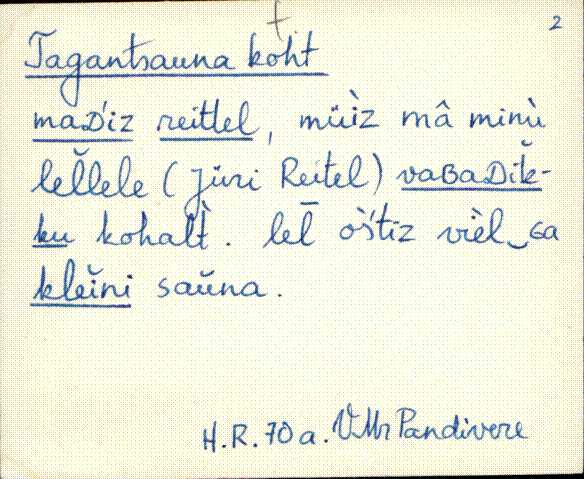 2
Tagantsauna koht
maD'iz reitlel, müìz mâ minù
lel̆lele (Jüri Reitel) vaʙaDik̆-
ku kohalt̀. lel̄ oš'tiz vièl‿ɢa
klĕini saŭna.
H.R. 70 a. VMr Pandivere